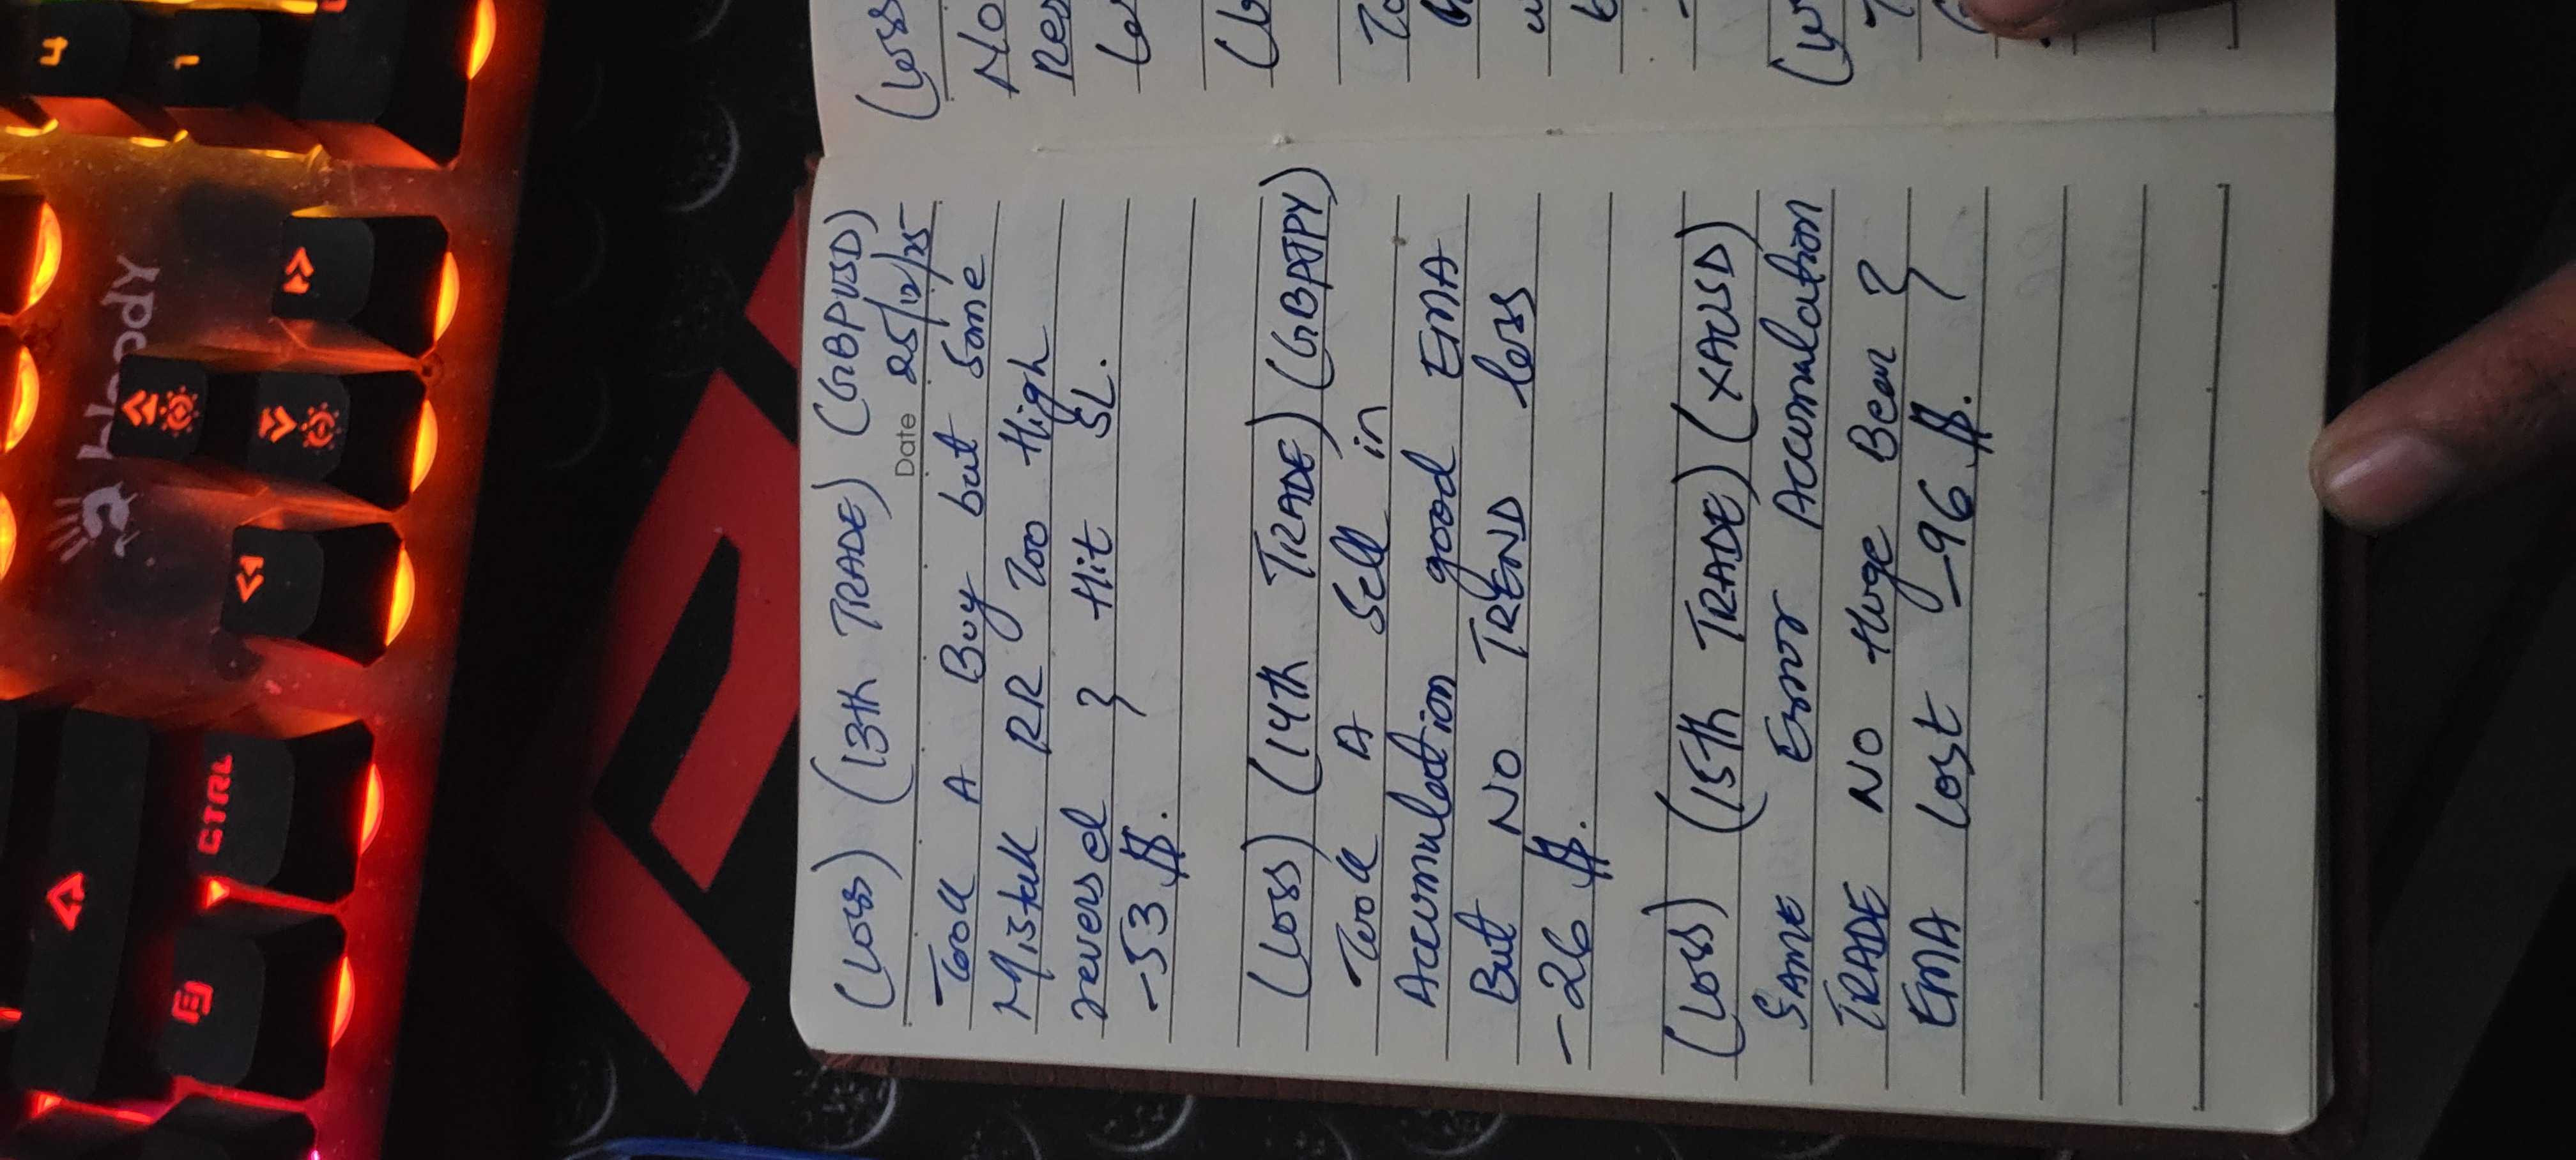 (Loss) (13th TRADE) (GBPUSD)
Date 25/12/25
Took A Buy but Same
Mistak RR Too High
reversel & Hit SL.
-53 $.
(Loss) (14th TRADE) (GBPJPY)
Took A Sell in
Accumulation good EMA
But NO TREND loss
-26 $.
(Loss) (15th TRADE) (XAUSD)
SAME Error Accumulation
TRADE NO Huge Bear &
EMA Lost -96 $.
(Loss
No
Res
Bloody
CTRL
4
1